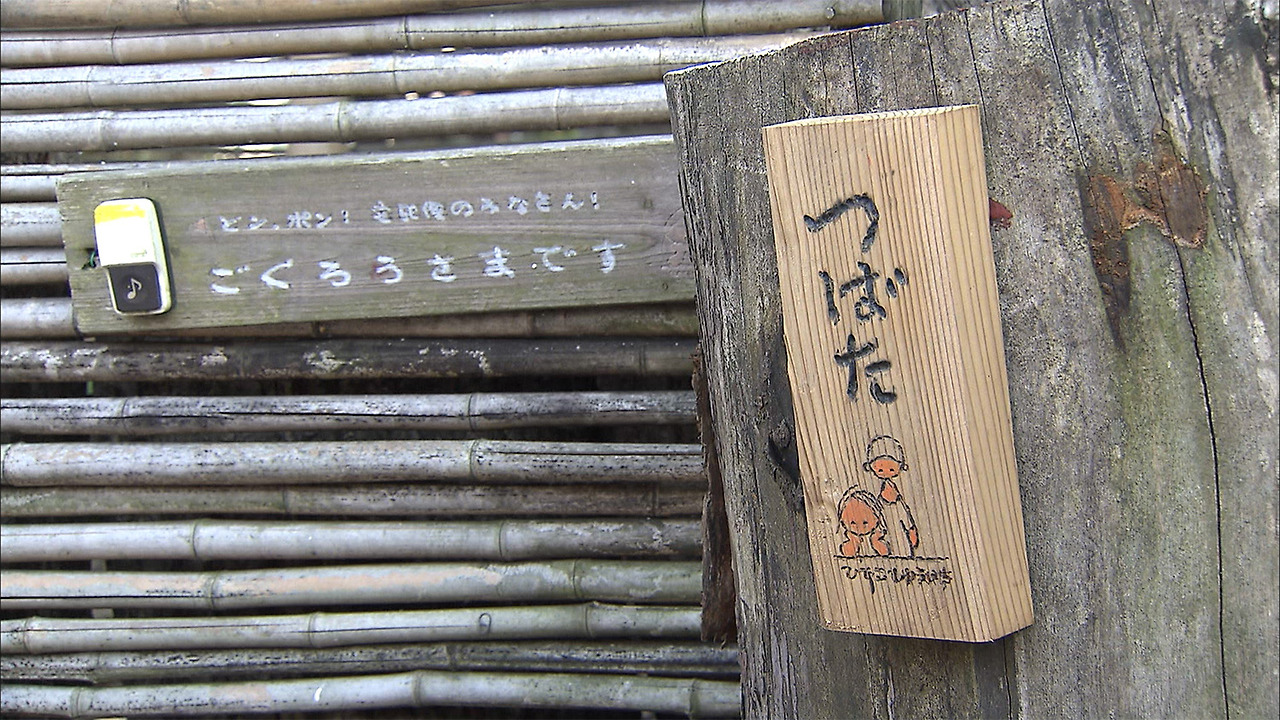 ピンポン! 宅配便のみなさん!
ごくろうさまです
つばた
ひでこしゅういち